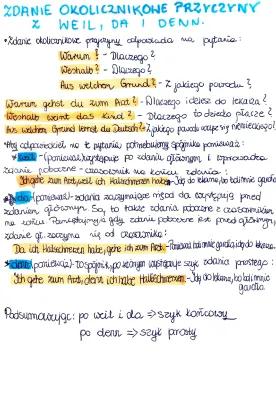 ZDANIE OKOLICZNIKOWE PRZYCZYNY
Z WEIL, DA I DENN.
• Zdanie okolicznikowe przyczyny odpowiada na pytania:
Warum? - Dlaczego?
Weshalb? - Dlaczego?
Aus welchem Grund? - Z jakiego powodu?
Warum gehst du zum Arzt? - Dlaczego idziesz do lekarza?
Weshalb weint das Kind? - Dlaczego to dziecko płacze?
Aus welchem Grund lernst du Deutsch? - Z jakiego powodu uczysz się niemieckiego?
Aby odpowiedzieć na te pytania potrzebujemy spójników ponieważ:
• weil (ponieważ) występuje po zdaniu głównym i wprowadza
zdanie poboczne - czasownik na końcu zdania:
Ich gehe zum Arzt, weil ich Halsschmerzen habe - Idę do lekarza, bo boli mnie gardło
• da (ponieważ) - zdania zaczynające się od da występują przed
zdaniem głównym. Są to także zdania poboczne z czasownikiem
na końcu. Pamiętaj, gdy zdanie poboczne jest przed głównym,
zdanie gł. zaczyna się od orzeczenia:
Da ich Halsschmerzen habe, gehe ich zum Arzt. - Ponieważ boli mnie gardło, idę do lekarza.
• denn (ponieważ) - TO spójnik, po którym występuje szyk zdania prostego:
Ich gehe zum Arzt, denn ich habe Halsschmerzen - Idę do lekarza, bo boli mnie
gardło.
Podsumowując: po weil i da => szyk końcowy
po denn => szyk prosty